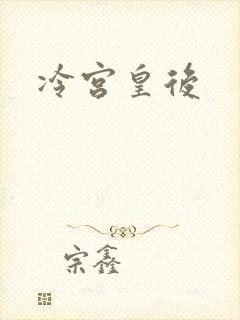 冷宫皇後
宗鑫